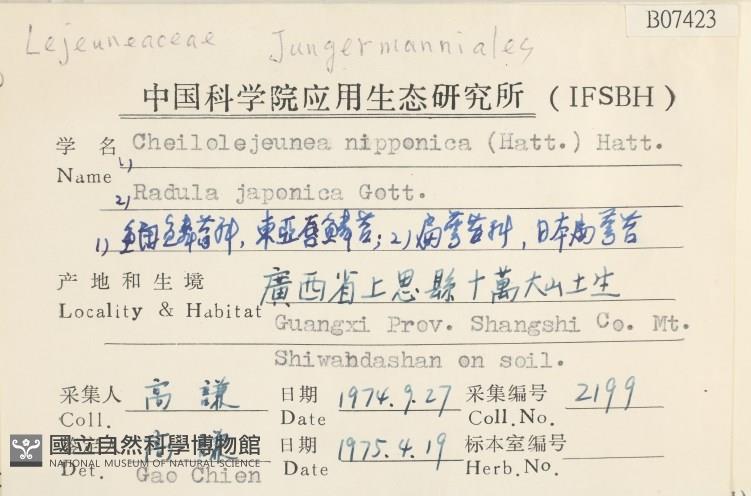 B07423
Lejeuneaceae Jungermanniales
中国科学院应用生态研究所 (IFSBH)
学 名 Cheilolejeunea nipponica (Hatt.) Hatt.
Name 1)
2) Radula japonica Gott.
1) 細鱗苔科, 東亞唇鱗苔; 2) 扁萼苔科, 日本扁萼苔
产 地 和 生 境 廣西省上思縣十萬大山土生
Locality & Habitat Guangxi Prov. Shangshi Co. Mt.
Shiwandashan on soil.
采集人 高 謙 日期 1974.9.27 采集编号 2199
Coll. Date Coll.No.
高 謙 日期 1975.4.19 标本室编号
Det. Gao Chien Date Herb.No.
國立自然科學博物館
NATIONAL MUSEUM OF NATURAL SCIENCE